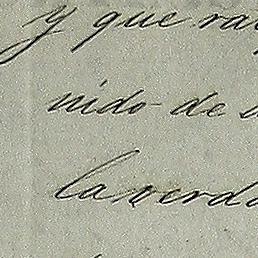 y que ra
nido de
la verda